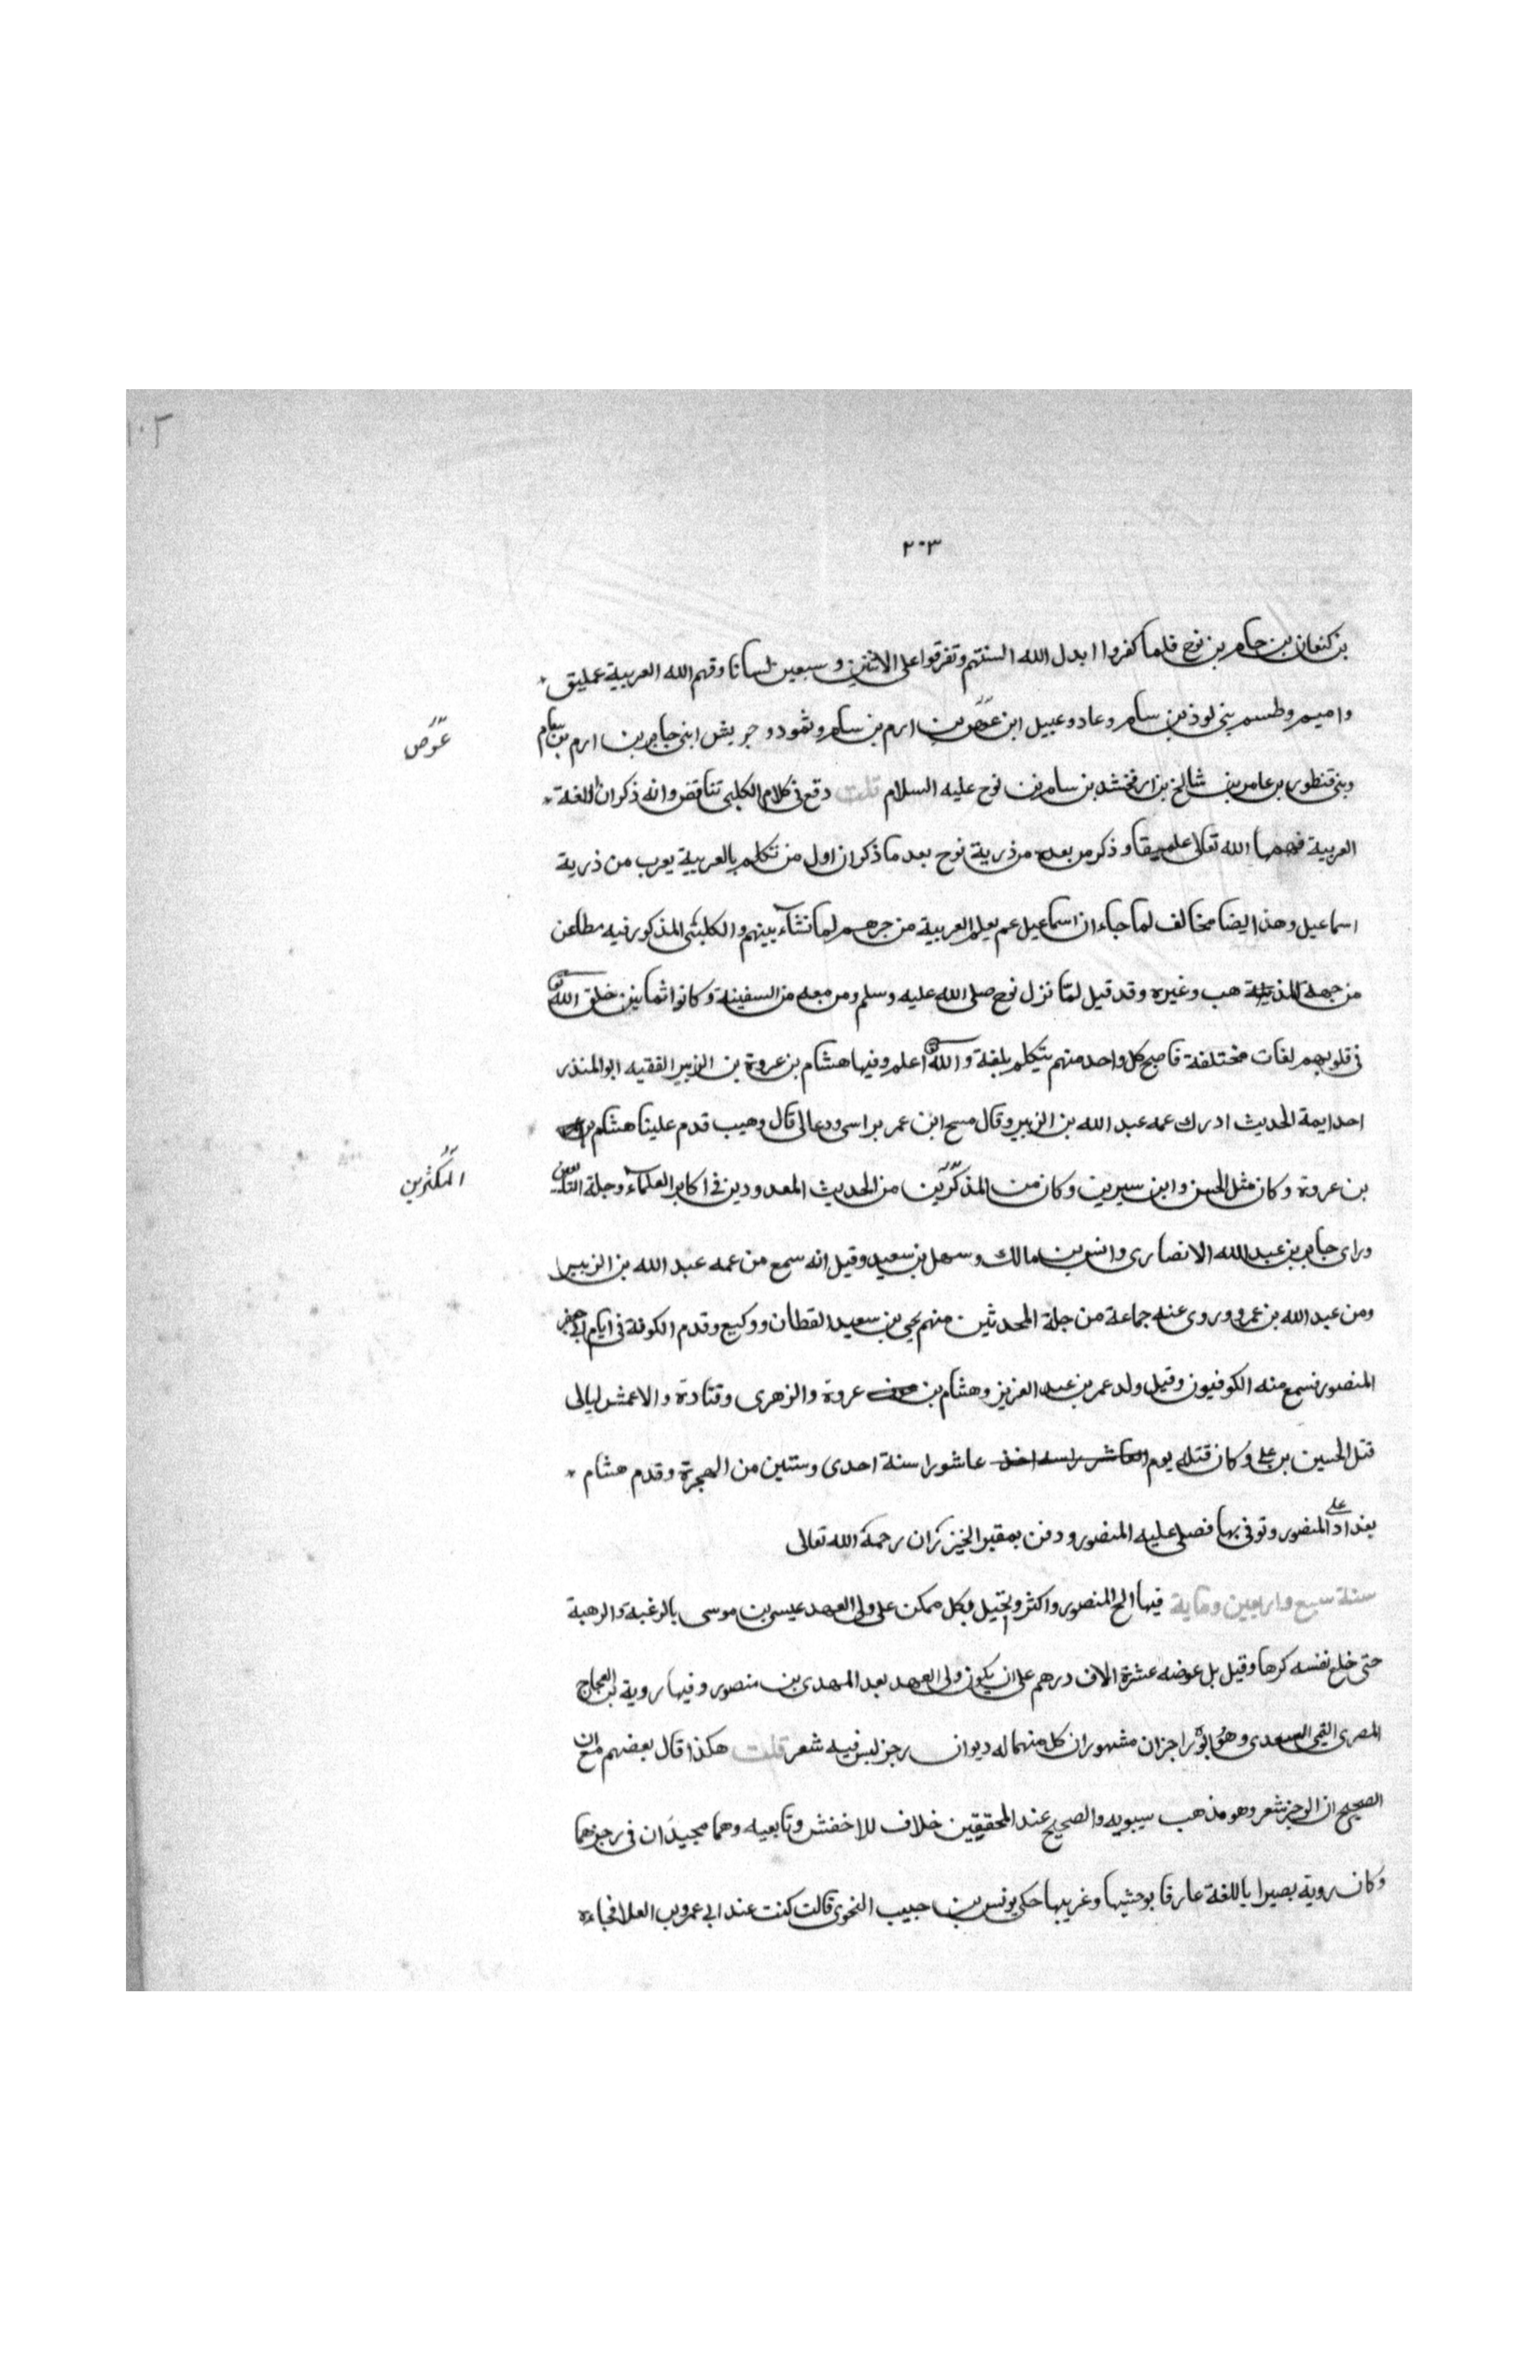 ١٠٢
٢٠٣
بن كنعان بن حام بن نوح فلما كفروا ابدل الله السنتهم وتفرقوا على الاثنين وسبعين لسانا وفهم الله العربية عمليق
واميم وطسم بنى لوذ بن سام وعاد وعبيل ابن عوص بن ارم بن سام وثمود وجريش ابنى جابر بن ارم بن سام
عوص
وبنى قنطورا بن عامر بن شالخ بن ارفخشد بن سام بن نوح عليه السلام قلت وقع فى كلام الكلبى تناقض وانه ذكر ان اللغة
العربية فهمها الله تعالى عمليقا وذكر من بعده من ذرية نوح بعد ما ذكر ان اول من تكلم بالعربية يعرب من ذرية
اسماعيل وهذا ايضا مخالف لما جاء ان اسماعيل عم يعلم العربية من جرهم لما نشاء بينهم والكلبى المذكور فيه مطاعن
من جهة المذهب وغيره وقد قيل لما نزل نوح صلى الله عليه وسلم ومن معه من السفينة وكانوا ثمانين خلق الله
فى قلوبهم لغات مختلفة فاصبح كل واحد منهم يتكلم بلغة والله اعلم وفيها هشام بن عروة بن الزبير الفقيه ابو المنذر
احد ايمة الحديث ادرك عمه عبد الله بن الزبير وقال مسح ابن عمر براسى ودعا لى قال وهيب قدم علينا هشام
بن عروة وكان مثل الحسن وابن سيرين وكان من المذكرين من الحديث المعدودين فى اكابر العلماء وجلة التابعين
المكثرين
وراى جابر بن عبد الله الانصارى وانس بن مالك وسهل بن سعيد وقيل انه سمع من عمه عبد الله بن الزبير
ومن عبد الله بن عمر وروى عنه جماعة من جلة المحدثين منهم يحيى بن سعيد القطان ووكيع وقدم الكوفة فى ايام ابى جعفر
المنصور فسمع منه الكوفيون وقيل ولد عمر بن عبد العزيز وهشام بن عروة والزهرى وقتادة والاعمش ليالى
قتل الحسين بن على وكان قتله يوم عاشورا سنة احدى وستين من الهجرة وقدم هشام
بغداد على المنصور وتوفى بها فصلى عليه المنصور ودفن بمقبر الخيزران رحمة الله تعالى
سنة سبع واربعين وماية فيها الح المنصور واكثر وتحيل بكل ممكن على ولى العهد عيسى بن موسى بالرغبة والرهبة
حتى خلع نفسه كرها وقيل بل عوضه عشرة الاف درهم على ان يكون ولى العهد بعد المهدى بن منصور وفيها روية بن العجاج
المصرى التيمى السعدى وهو وابوه راجزان مشهوران كل منهما له ديوان رجز ليس فيه شعر قلت هكذا قال بعضهم مع ان
الصحيح ان الرجز شعر وهو مذهب سيبويه والصحيح عند المحققين خلاف للاخفش وتابعيه وهما مجيدان فى رجزهما
وكان روية بصيرا باللغة عارفا بوحشيها وغريبها حكى يونس بن حبيب النحوى قالت كنت عند ابى عمرو بن العلا فجاءه